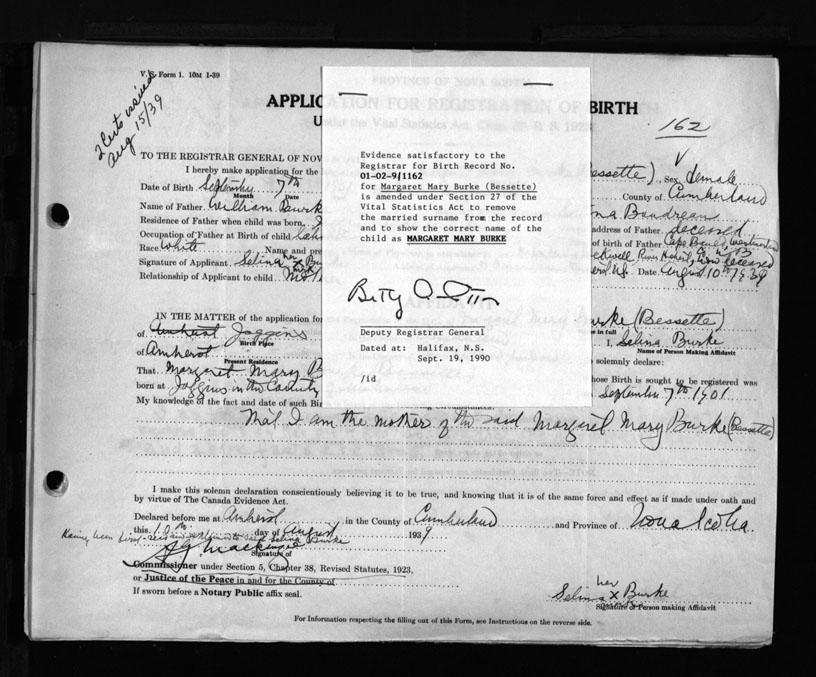 V. S. Form 1. 10M 1-39
2 Certs issued
Aug 15/39
PROVINCE OF NOVA SCOTIA
APPLICATION FOR REGISTRATION OF BIRTH
Under the Vital Statistics Act,
162
TO THE REGISTRAR GENERAL OF NOV
I hereby make application for the
(Bessette), Sex female
Date of Birth September 7th
Month Date
County of Cumberland
Name of Father William Burke
Boudreau
Residence of Father when child was born,
address of Father deceased
Occupation of Father at Birth of child
of birth of Father
Race White Name and pre
River Hebert deceased
Signature of Applicant Selina her x Burke mark
Date August 10th 1939
Relationship of Applicant to child Mother
IN THE MATTER of the application for
Burke (Bessette)
in full
of Amherst Joggins
Birth Place
I, Selina Burke
Name of Person Making Affidavit
of Amherst
Present Residence
solemnly declare:
That Margaret Mary B
whose Birth is sought to be registered was
born at Joggins in the County
September 7th 1901
My knowledge of the fact and date of such Bir
circumstances.
That I am the mother of the said Margaret Mary Burke (Bessette)
I make this solemn declaration conscientiously believing it to be true, and knowing that it is of the same force and effect as if made under oath and
by virtue of The Canada Evidence Act.
Declared before me at Amherst in the County of Cumberland and Province of Nova Scotia
this 10th day of August 1939
Having been first read and explained to said Selina Burke
Signature of
Commissioner under Section 5, Chapter 38, Revised Statutes, 1923,
or Justice of the Peace in and for the County of
If sworn before a Notary Public affix seal.
Selina her x Burke
Signature of Person making Affidavit
For Information respecting the filling out of this Form, see Instructions on the reverse side.
Evidence satisfactory to the
Registrar for Birth Record No.
01-02-9/1162
for Margaret Mary Burke (Bessette)
is amended under Section 27 of the
Vital Statistics Act to remove
the married surname from the record
and to show the correct name of the
child as MARGARET MARY BURKE
Deputy Registrar General
Dated at: Halifax, N.S.
Sept. 19, 1990
/id